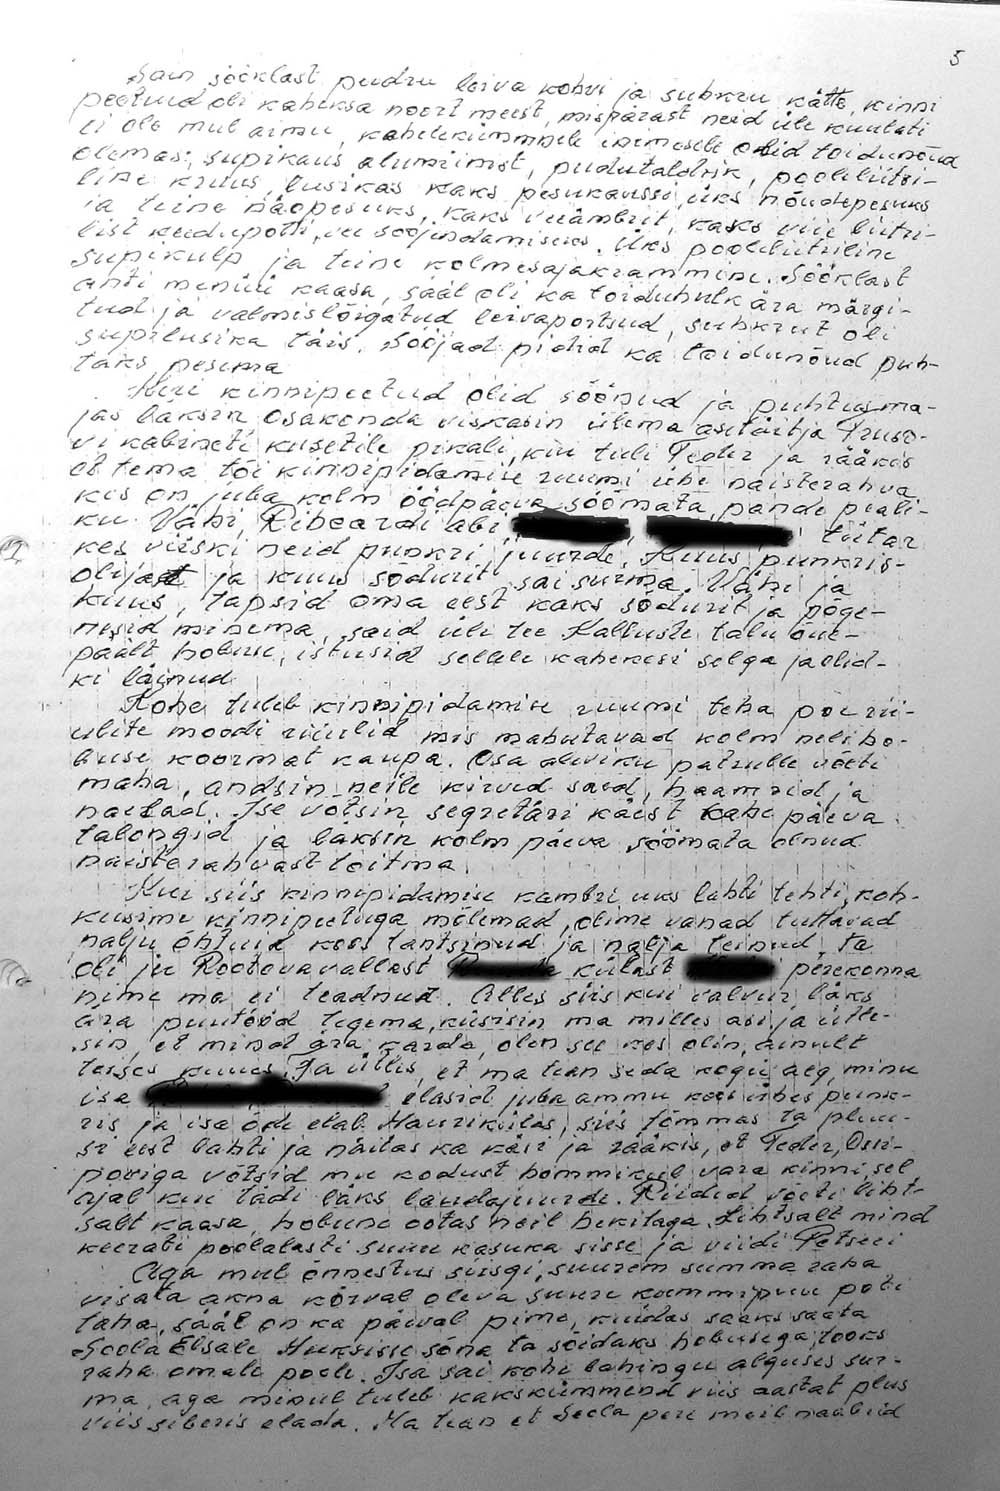 5
Sain sööklast pudru leiva kohvi ja suhkru kätte, kinni
peetuid oli kaheksa noort meest, mispärast neid üle kuulati
ei ole mul aimu, kahelekümmnele inimesele olid toidunõud
olemas: supikauss alumiinist, pudrutaldrik, pooleliitri-
line kruus, lusikas kaks pesukaussi, üks nõudepesuks
ja teine näopesuks, kaks veeämbrit, kaks viie liitri-
list keedupotti, vee soojendamiseks. Üks pooleliitriline
supikulp ja teine kolmesajakrammine. Sööklast
anti menüü kaasa, sääl oli ka toiduhulk ära märgi-
tud ja valmislõigatud leivaportsud, suhkrut oli
supilusika täis. Sööjad pidid ka toidunõud puh-
taks pesema
Kui kinnipeetud olid söönud ja puhtusma-
jas läksin osakonda viskasin ülema asetäitja Truso-
vi kabineti kusetile pikali, kui tuli Teder ja rääkis
et tema tõi kinnipidamise ruumi ühe naisterahva
kes on juba kolm ööpäeva söömata, pande peali-
ku Vähi, Ribeardi abi tütar
kes viiski neid punkri juurde. Kuus punkris-
olijat ja kuus sõdurit sai surma. Vähi ja
kuus, tapsid oma eest kaks sõdurit ja põge-
nesid minema, said üle tee Kalkuste talu õue-
päält hobuse, istusid sellele kahekesi selga ja olid-
ki läinud
Kohe tuleb kinnipidamise ruumi teha poe rii-
ulite moodi riiulid mis mahutavad kolm neli ho-
buse koormat kaupa. Osa aleviku patrulle võeti
maha, andsin neile kirved saed, haamrid ja
naelad. Ise võtsin segretäri käest kahe päeva
talongid ja läksin kolm päeva söömata olnud
naisterahvast toitma
Kui siis kinnipidamise kambri uks lahti tehti, koh-
kusime kinnipeetuga mõlemad, olime vanad tuttavad
nalju õhtuid koos tantsinud ja nalja teinud ta
oli ju Rootovavallast külast perekonna
nime ma ei teadnud. Alles siis kui valvur läks
ära puutööd tegema, küsisin ma milles asi ja ütle-
sin, et mind ära karda, olen see kes olin, ainult
teises kuues. Ta ütles, et ma tean seda kogu aeg, minu
isa elasid juba ammu koos ühes punk-
ris ja isa õde elab Haurikülas, siis tõmmas ta pluu-
si eest lahti ja näitas ka käsi ja rääkis, et Teder, Ossi-
poviga võtsid mu kodust hommikul vara kinni, sel
ajal kui tädi läks laudajuurde. Riided võeti liht-
salt kaasa, hobune ootas neil hekitaga. Lihtsalt mind
keerati poolalasti suure kasuka sisse ja viidi Petseri
Aga mul õnnestus siisgi, suurem summa raha
visata akna kõrval oleva suure kummipuu poti
taha, sääl on ka päeval pime, kuidas saaks saata
Soola Elsale Huksisse sõna ta sõidaks hobusega, tooks
raha omale poole. Isa sai kohe lahingu alguses sur-
ma, aga minul tuleb kakskümmend viis aastat plus
viis siberis elada. Ma tean et Soola pere meil naabrid